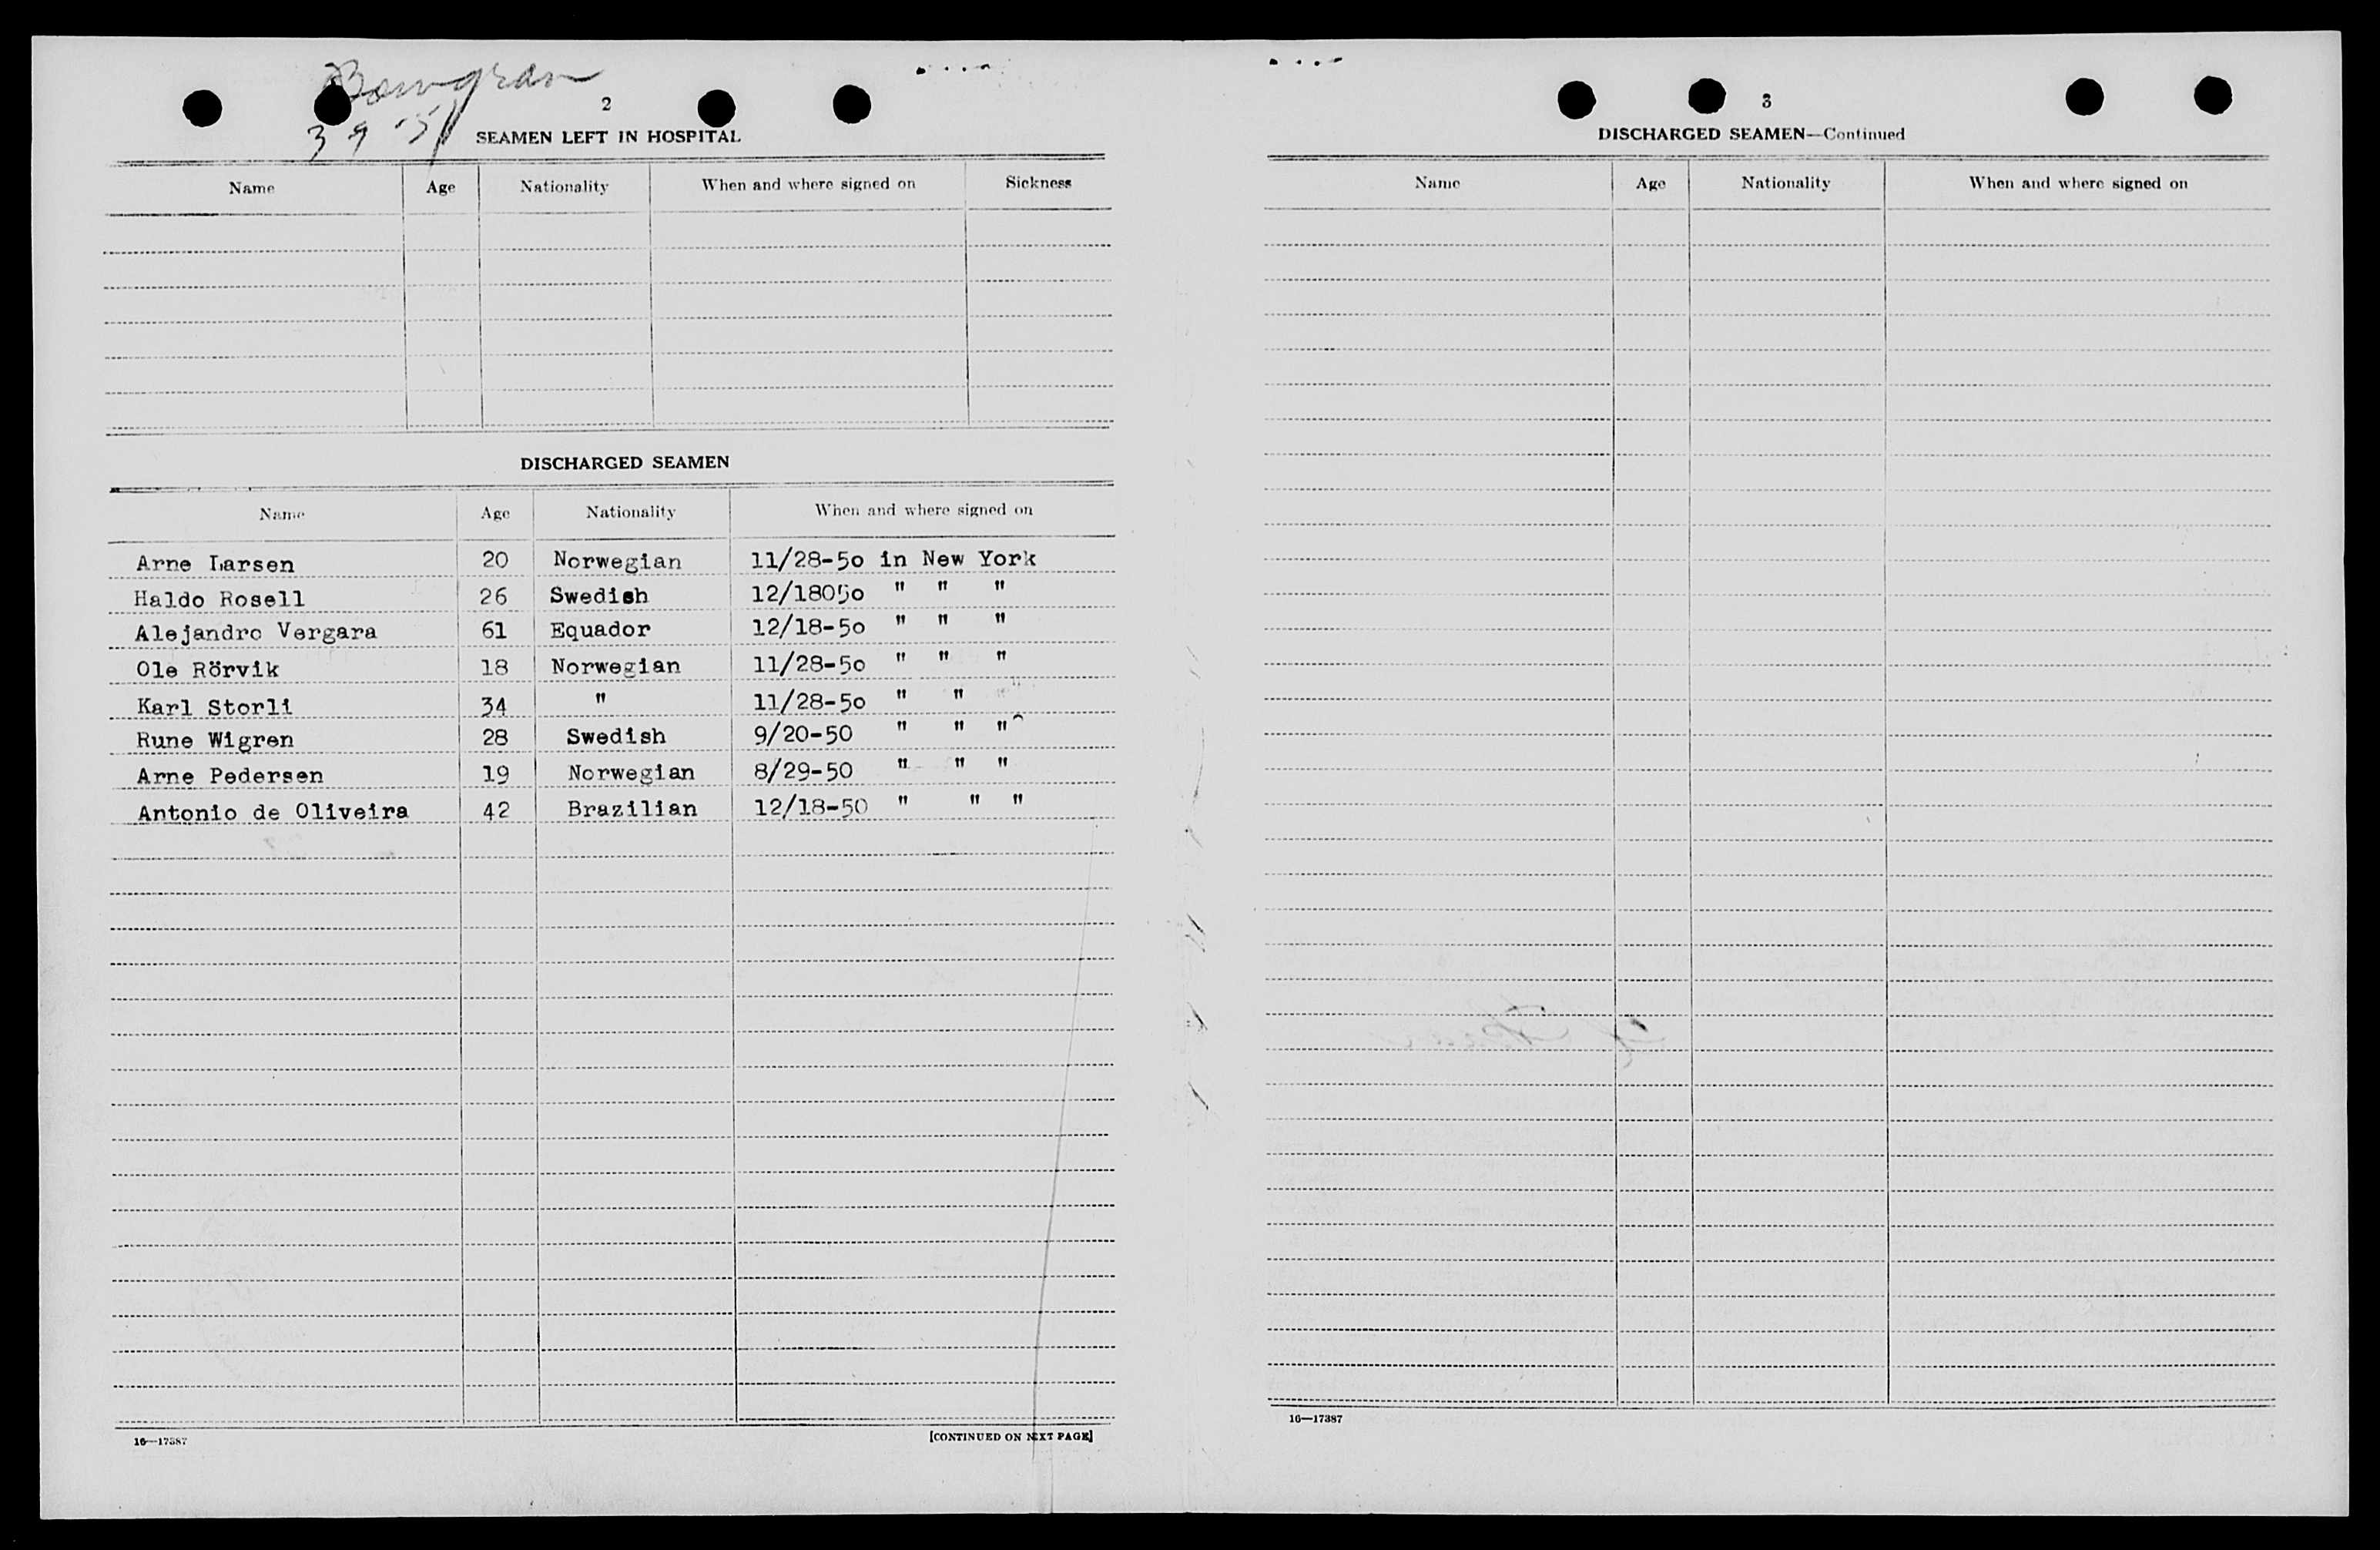 Bowgran
3 9 '51
2
SEAMEN LEFT IN HOSPITAL
Name Age Nationality When and where signed on Sickness
DISCHARGED SEAMEN
Name Age Nationality When and where signed on
Arne Larsen 20 Norwegian 11/28-5o in New York
Haldo Rosell 26 Swedish 12/18050 " " "
Alejandro Vergara 61 Equador 12/18-5o " " "
Ole Rörvik 18 Norwegian 11/28-5o " " "
Karl Storli 34 " 11/28-5o " " "
Rune Wigren 28 Swedish 9/20-50 " " "
Arne Pedersen 19 Norwegian 8/29-50 " " "
Antonio de Oliveira 42 Brazilian 12/18-50 " " "
16—17387 [CONTINUED ON NEXT PAGE]
3
DISCHARGED SEAMEN—Continued
Name Age Nationality When and where signed on
16—17387